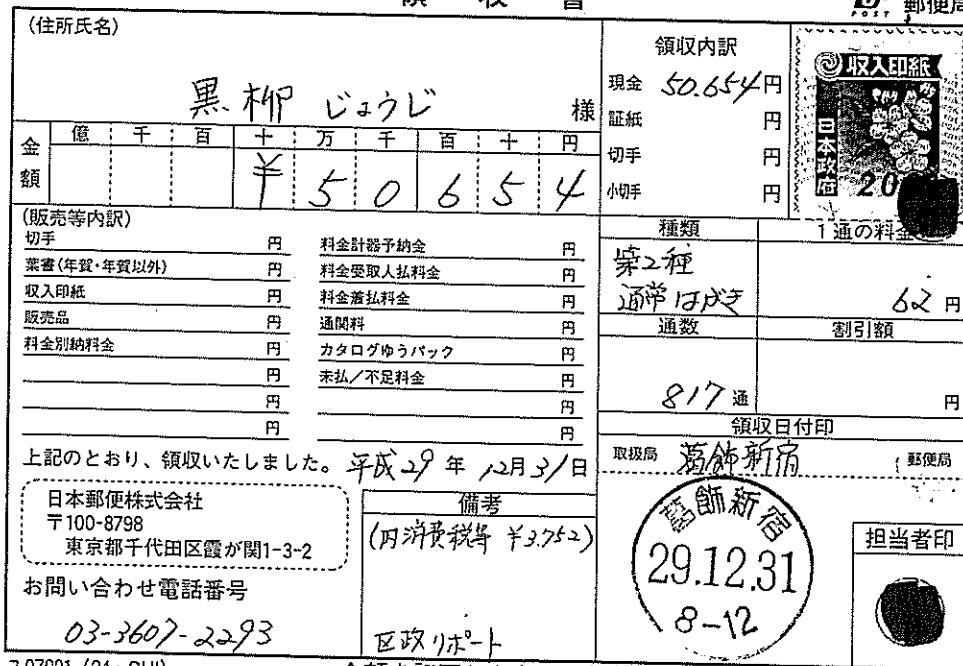 領 収 書
POST 郵便局
(住所氏名)
黒柳 じょうじ 様
金額 億 千 百 十 万 千 百 十 円
¥ 5 0 6 5 4
領収内訳
現金 50.654円
証紙 円
切手 円
小切手 円
収入印紙
日本政府
20
(販売等内訳)
切手 円
葉書(年賀・年賀以外) 円
収入印紙 円
販売品 円
料金別納料金 円
円
円
円
料金計器予納金 円
料金受取人払料金 円
料金着払料金 円
通関料 円
カタログゆうパック 円
未払/不足料金 円
円
円
種類
第2種
通常はがき
1通の料金
62 円
通数
817 通
割引額
円
領収日付印
取扱局 葛飾新宿 郵便局
上記のとおり、領収いたしました。 平成29年 12月31日
日本郵便株式会社
〒100-8798
東京都千代田区霞が関1-3-2
お問い合わせ電話番号
03-3607-2293
備考
(内消費税等 ¥3.752)
区政リポート
葛飾新宿
29.12.31
8-12
担当者印